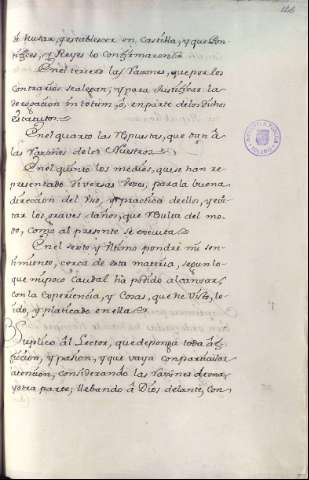 126
tifices, y Reyes lo confirmaron.
En el tercero las Razones, que por los
contrarios se alegan, y para justificar la
derogacion in totum, ó, en parte de los dichos
Estatutos.
En el quarto las respuestas, que dan á
las Razones de los Nuestros.
En el quinto los medios, que se han re
presentado diversas Vezes, para la buena
direccion del Uso, y practica dello, y evi
tar los graves daños, que resultan del mo
do, como al presente se executa.
En el sexto, y Ultimo pondré mi sen
timiento, cerca de esta materia, segun lo
que mi poco Caudal ha podido alcanzar,
con la experiencia, y cosas, que he Visto, lei
do, y platicado en ella.
Suplico ál Lector, que deponga toda
ficcion, y pasion, y que vaya con particular
atencion, considerando las razones de una,
y otra parte; llebando á Dios delante, con